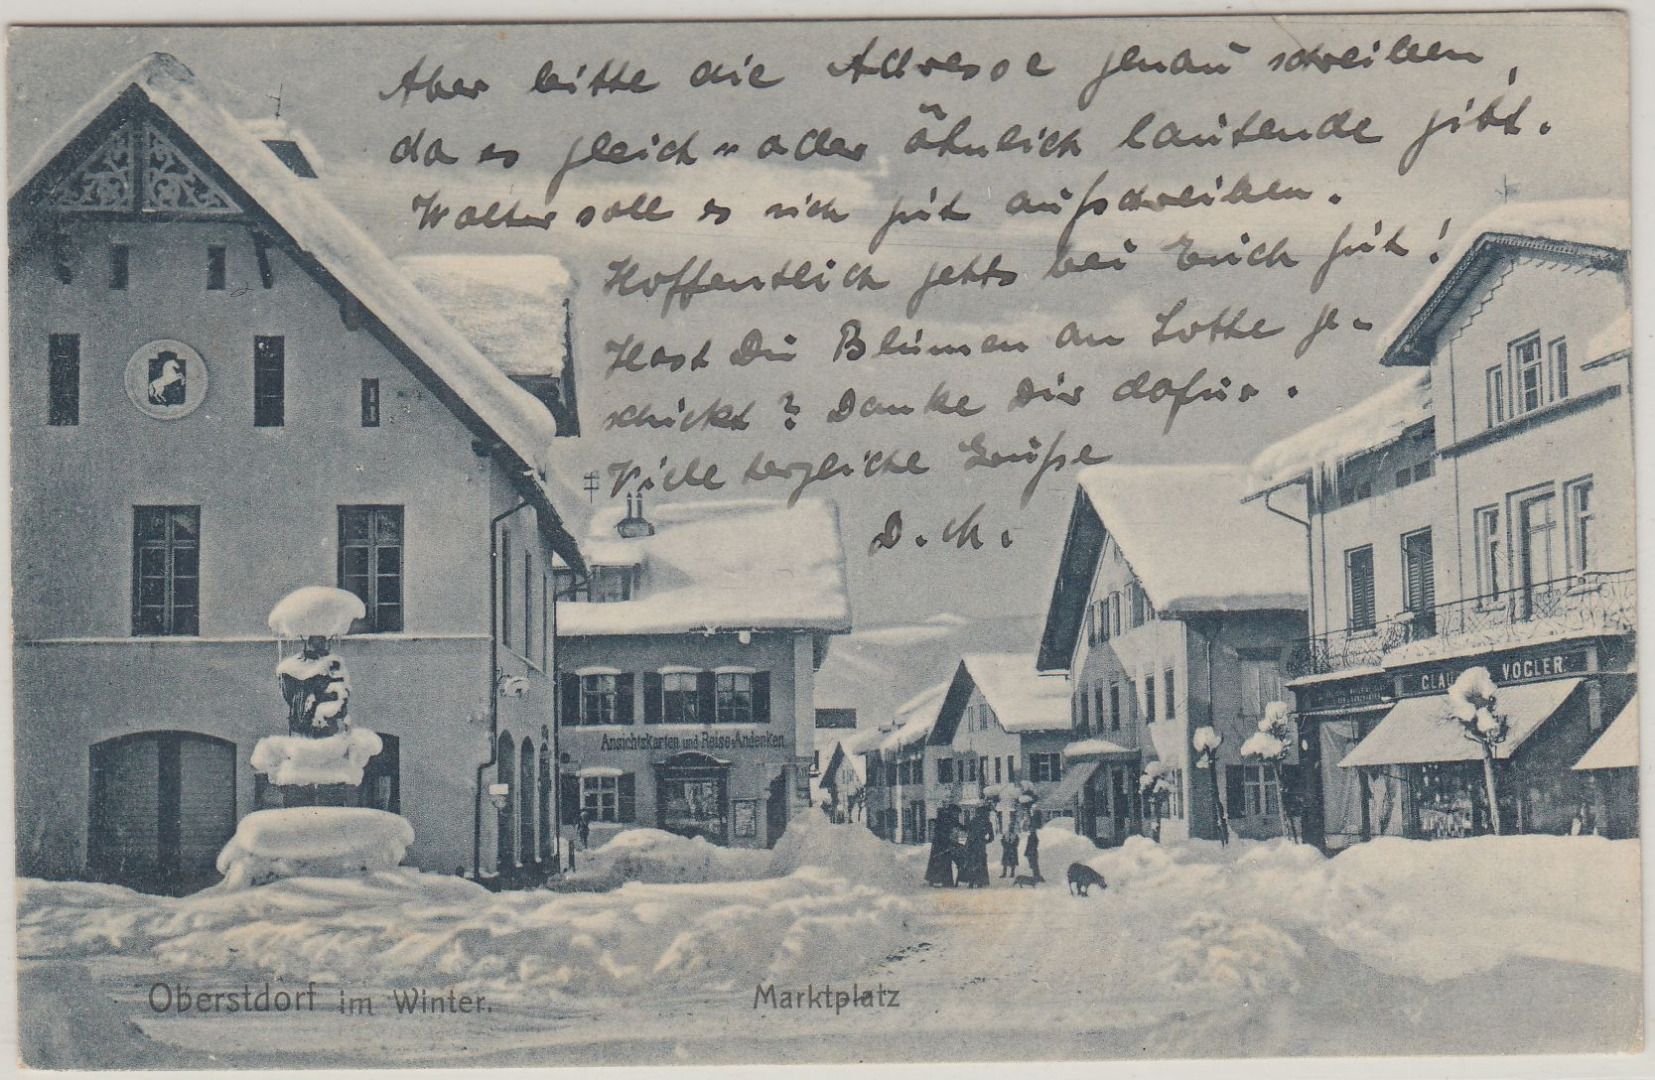 Aber bitte die Adresse genau schreiben,
da es gleich- oder ähnlich lautende gibt.
Walter soll es sich gut aufschreiben.
Hoffentlich gehts bei Erich gut!
Hast Du Blumen an Lotte ge-
schickt? Danke Dir dafür.
Viele herzliche Grüße
D. M.
Ansichtskarten und Reise-Andenken
VOGLER
Oberstdorf im Winter.
Marktplatz